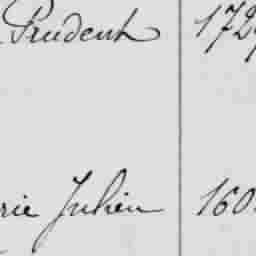 Prudent 172
rie Julien 160